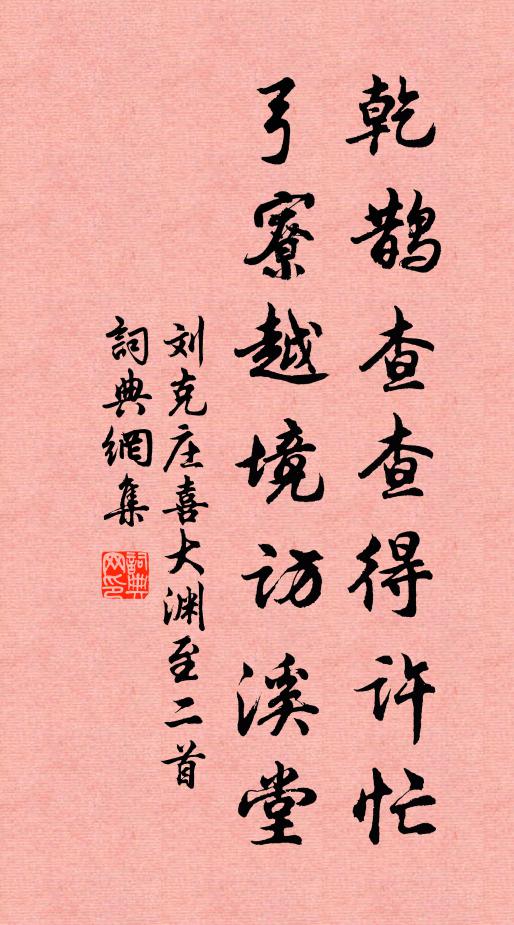 乾鹊查查得许忙
弓寮越境访溪堂
刘克庄喜大渊至二首
詞典網集
詞典網印